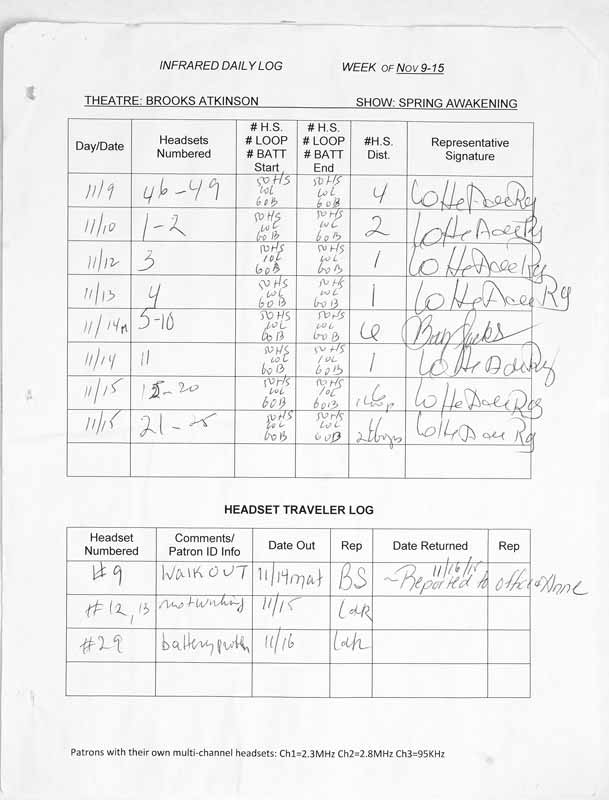 INFRARED DAILY LOG WEEK OF NOV 9-15
THEATRE: BROOKS ATKINSON SHOW: SPRING AWAKENING
Day/Date
Headsets
Numbered
# H.S.
# LOOP
# BATT
Start
# H.S.
# LOOP
# BATT
End
#H.S.
Dist.
Representative
Signature
11/9 46-49 50HS 50HS 4
10L 10L
60B 60B
11/10 1-2 50HS 50HS 2
10L 10L
60B 60B
11/12 3 50HS 50HS 1
10L 10L
60B 60B
11/13 4 50HS 50HS 1
10L 10L
60B 60B
11/14M 5-10 50HS 50HS 6
10L 10L
60B 60B
11/14 11 50HS 50HS 1
10L 10L
60B 60B
11/15 -20 50HS 50HS
10L 10L
60B 60B
11/15 21-25 50HS 50HS
10L 10L
60B 60B
HEADSET TRAVELER LOG
Headset
Numbered
Comments/
Patron ID Info
Date Out Rep Date Returned Rep
#9 WALKOUT 11/14mat BS 11/16/15
~Reported to office Anne
#12, 13 not working 11/15 LdR
#29 battery problem 11/16 LdR
Patrons with their own multi-channel headsets: Ch1=2.3MHz Ch2=2.8MHz Ch3=95KHz